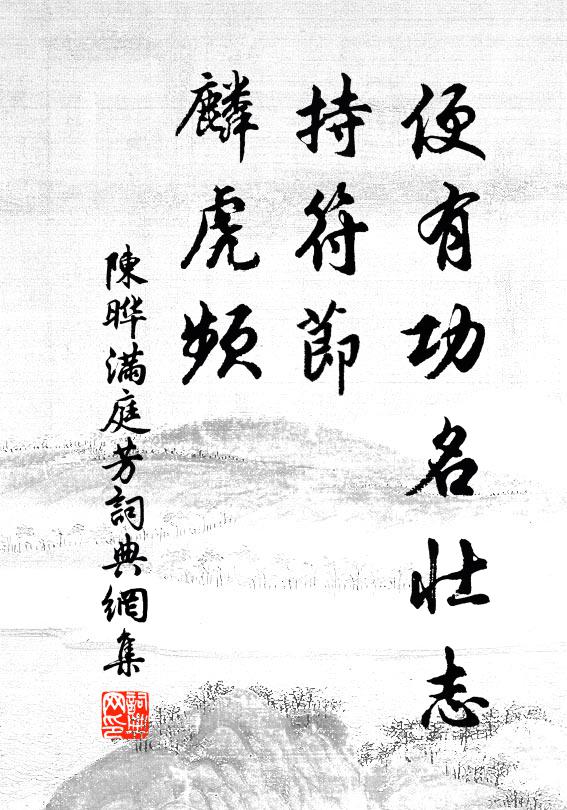 便有功名壯志
持符節
麟虎頻
陳曄滿庭芳詞典網集
詞典網印